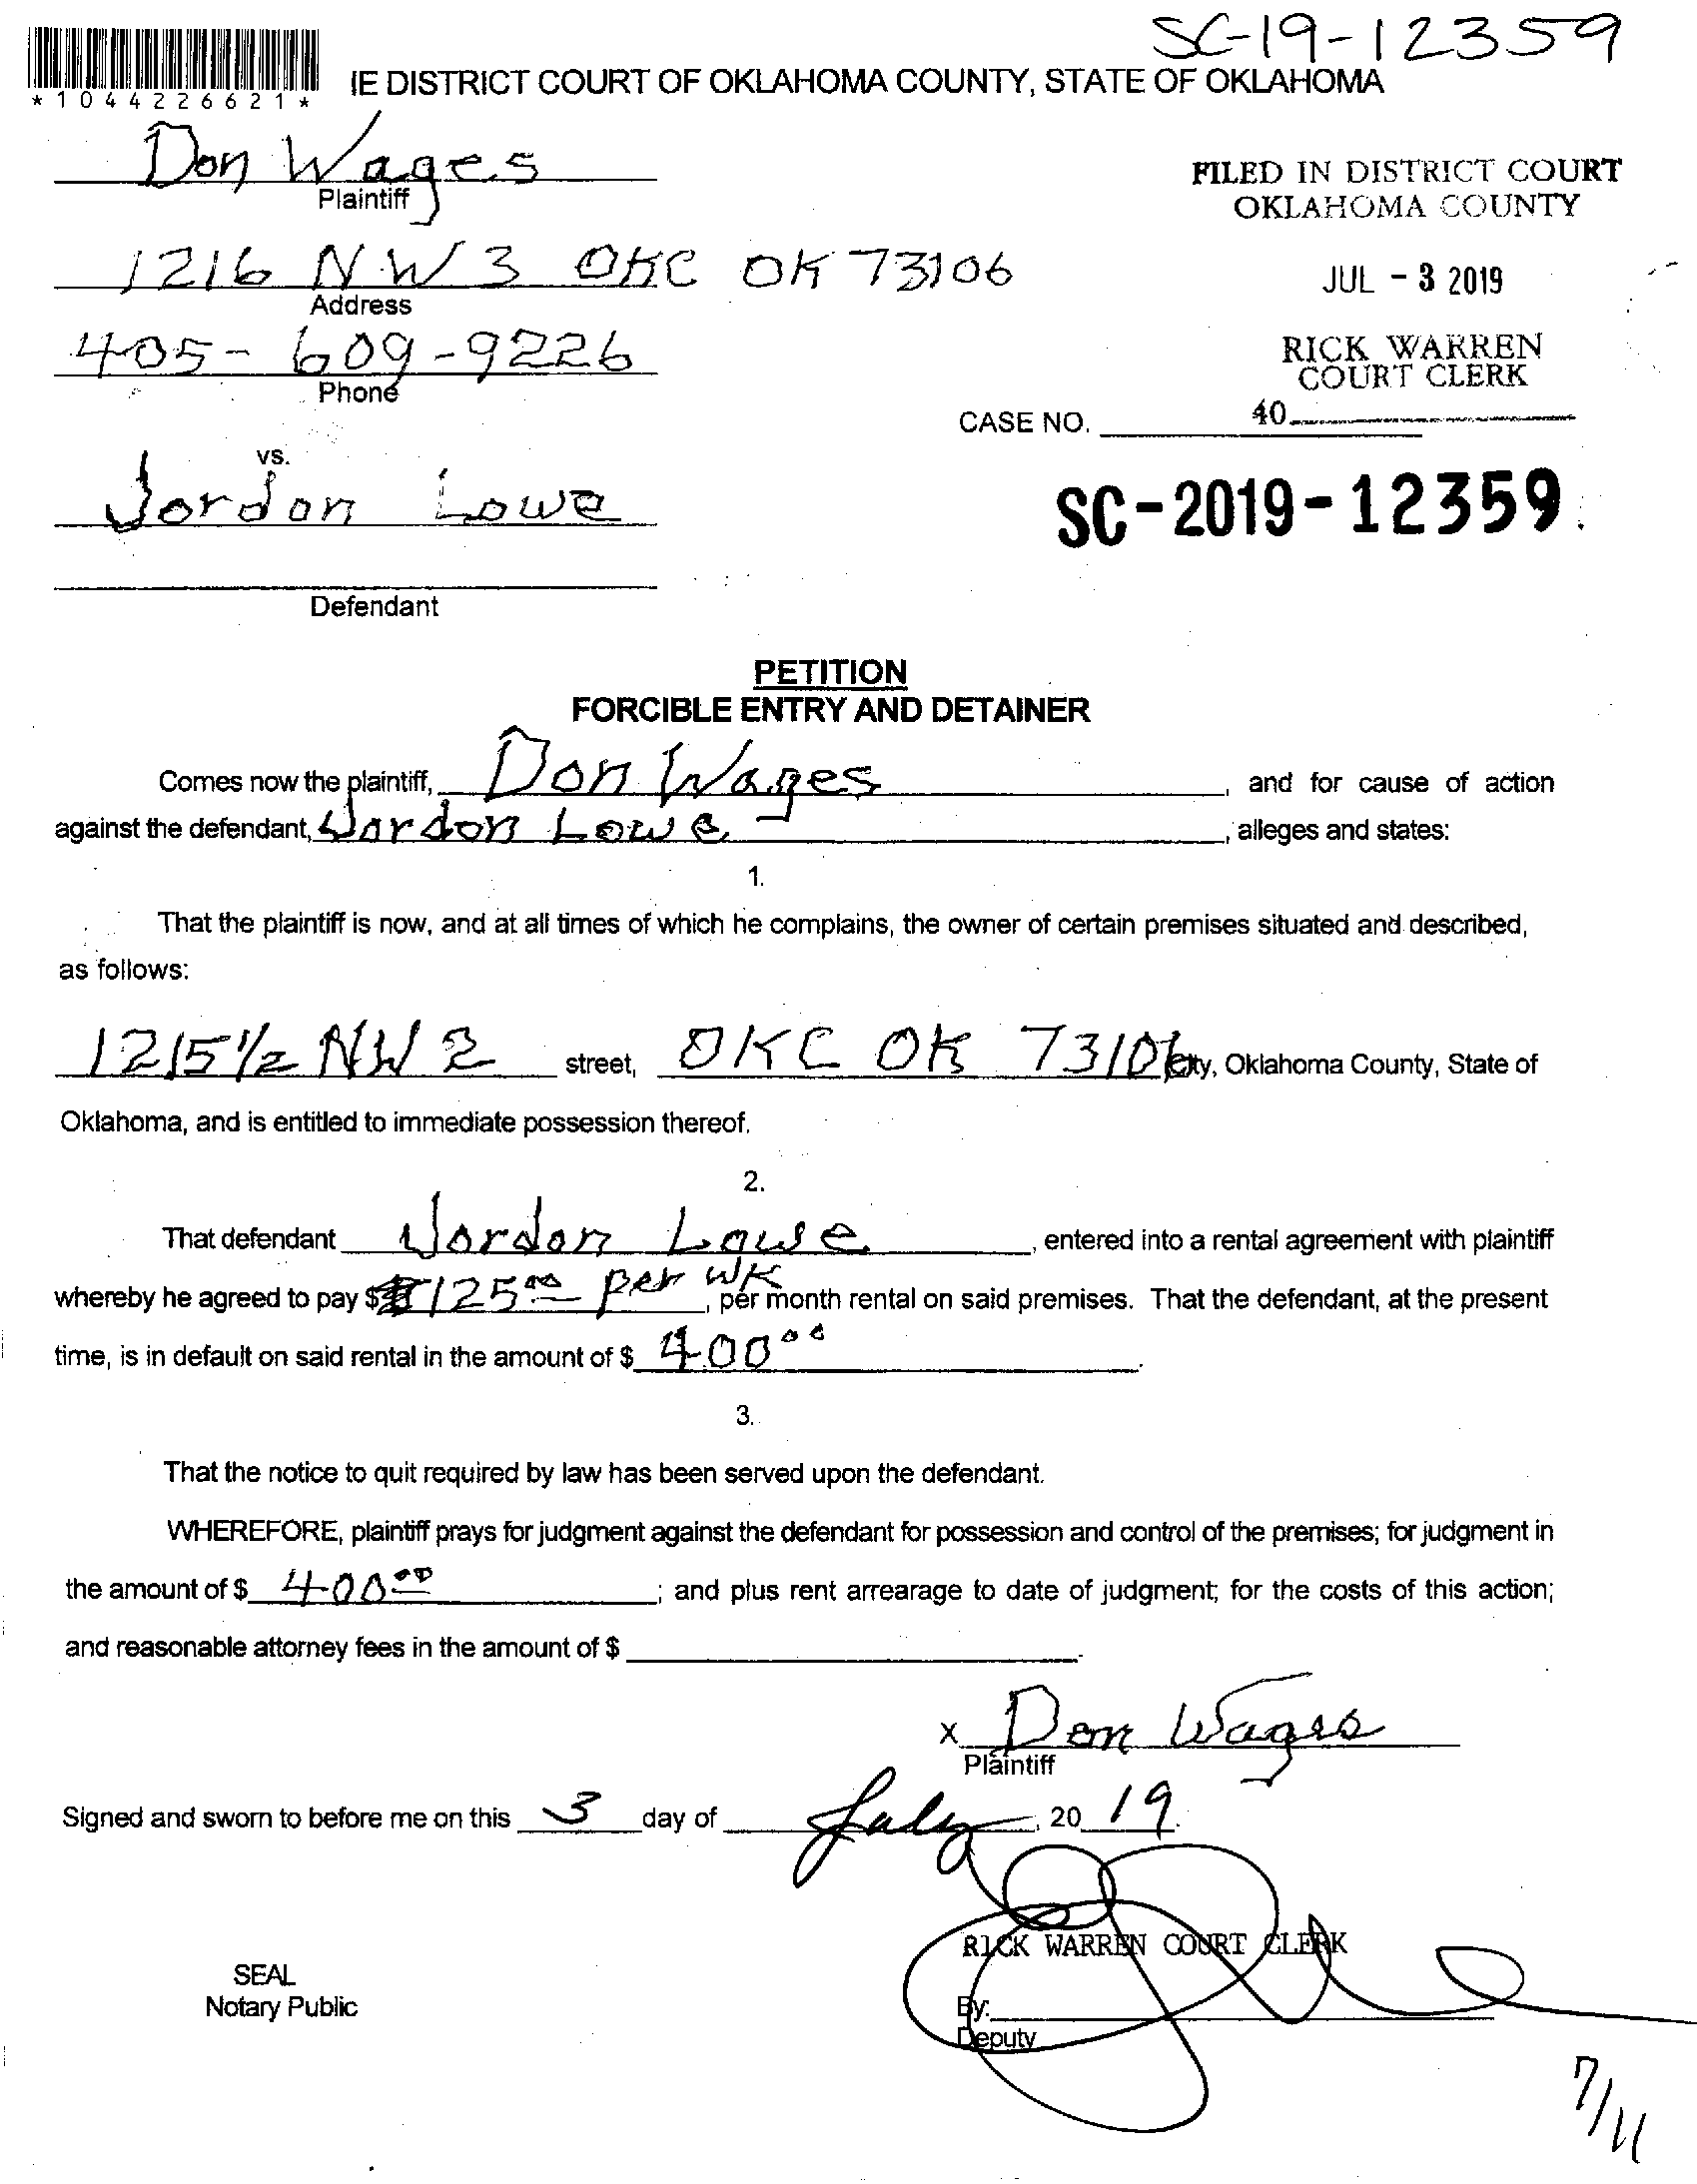 SC-19-12359
*1044226621*
IE DISTRICT COURT OF OKLAHOMA COUNTY, STATE OF OKLAHOMA
Don Wages
Plaintiff
FILED IN DISTRICT COURT
OKLAHOMA COUNTY
1216 NW 3 OKC OK 73106
Address
JUL - 3 2019
405-609-9226
Phone
RICK WARREN
COURT CLERK
CASE NO.
40
vs.
Jordon Lowe
SC-2019-12359
Defendant
PETITION
FORCIBLE ENTRY AND DETAINER
Comes now the plaintiff, Don Wages, and for cause of action
against the defendant, Jordon Lowe, alleges and states:
1.
That the plaintiff is now, and at all times of which he complains, the owner of certain premises situated and described,
as follows:
1215 1/2 NW 2 street, OKC OK 73106 City, Oklahoma County, State of
Oklahoma, and is entitled to immediate possession thereof.
2.
That defendant Jordon Lowe, entered into a rental agreement with plaintiff
whereby he agreed to pay $ 125.00 per wk, per month rental on said premises. That the defendant, at the present
time, is in default on said rental in the amount of $ 400.00.
3.
That the notice to quit required by law has been served upon the defendant.
WHEREFORE, plaintiff prays for judgment against the defendant for possession and control of the premises; for judgment in
the amount of $ 400.00; and plus rent arrearage to date of judgment; for the costs of this action;
and reasonable attorney fees in the amount of $
x Don Wages
Plaintiff
Signed and sworn to before me on this 3 day of July, 20 19.
RICK WARREN COURT CLERK
SEAL
Notary Public
By:
Deputy
7/11